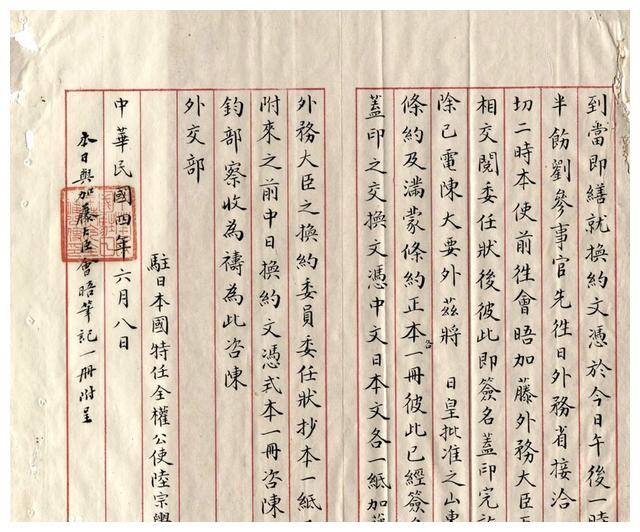 到當即繕就換約文憑於今日午後一時
半飭劉參事官先往日外務省接洽
切二時本使前往會晤加藤外務大臣
相交閱委任狀後彼此即簽名蓋印完
除已電陳大要外茲將 日皇批准之山東
條約及滿蒙條約正本各一冊彼此已經簽名
蓋印之交換文憑中文日本文各一紙加
外務大臣之換約委員委任狀抄本一紙
附來之前中日換約文憑式本一冊咨陳
鈞部察收為禱為此咨陳
外交部
駐日本國特任全權公使陸宗輿
中華民國四年六月八日
本日與加藤大臣會晤筆記一冊附呈